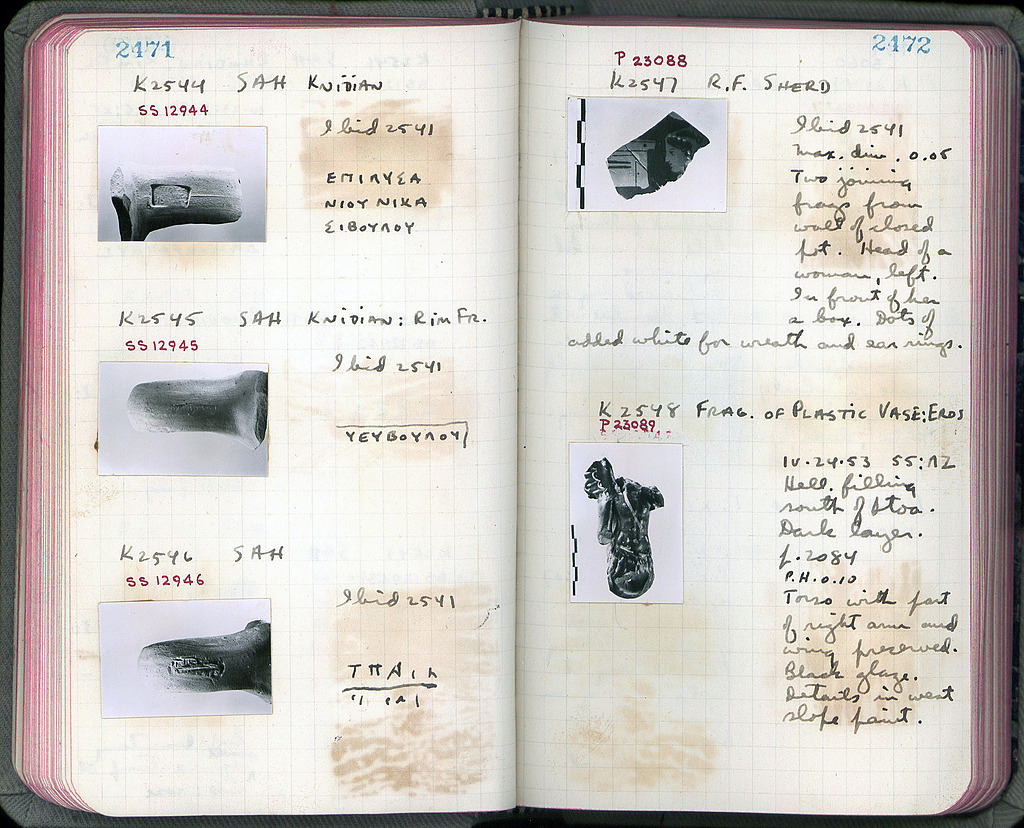 2471
K2544 SAH KNIDIAN
SS 12944
Ibid 2541
ΕΠΙΛΥΣΑ
ΝΙΟΥ ΝΙΚΑ
ΣΙΒΟΥΛΟΥ
K2545 SAH KNIDIAN: RIM FR.
SS 12945
Ibid 2541
ΥΕΥΒΟΥΛΟΥ
K2546 SAH
SS 12946
Ibid 2541
2472
P 23088
K2547 R.F. SHERD
Ibid 2541
Max. dim. 0.05
Two joining
frags from
wall of closed
pot. Head of a
woman, left.
In front of her
a box. Dots of
added white for wreath and ear rings.
K 2548 FRAG. OF PLASTIC VASE: EROS
P 23089
IV·24·53 55:ΛΖ
Hell. filling
south of Stoa.
Dark layer.
p. 2084
P.H. 0.10
Torso with part
of right arm and
wing preserved.
Black glaze.
Details in west
slope paint.